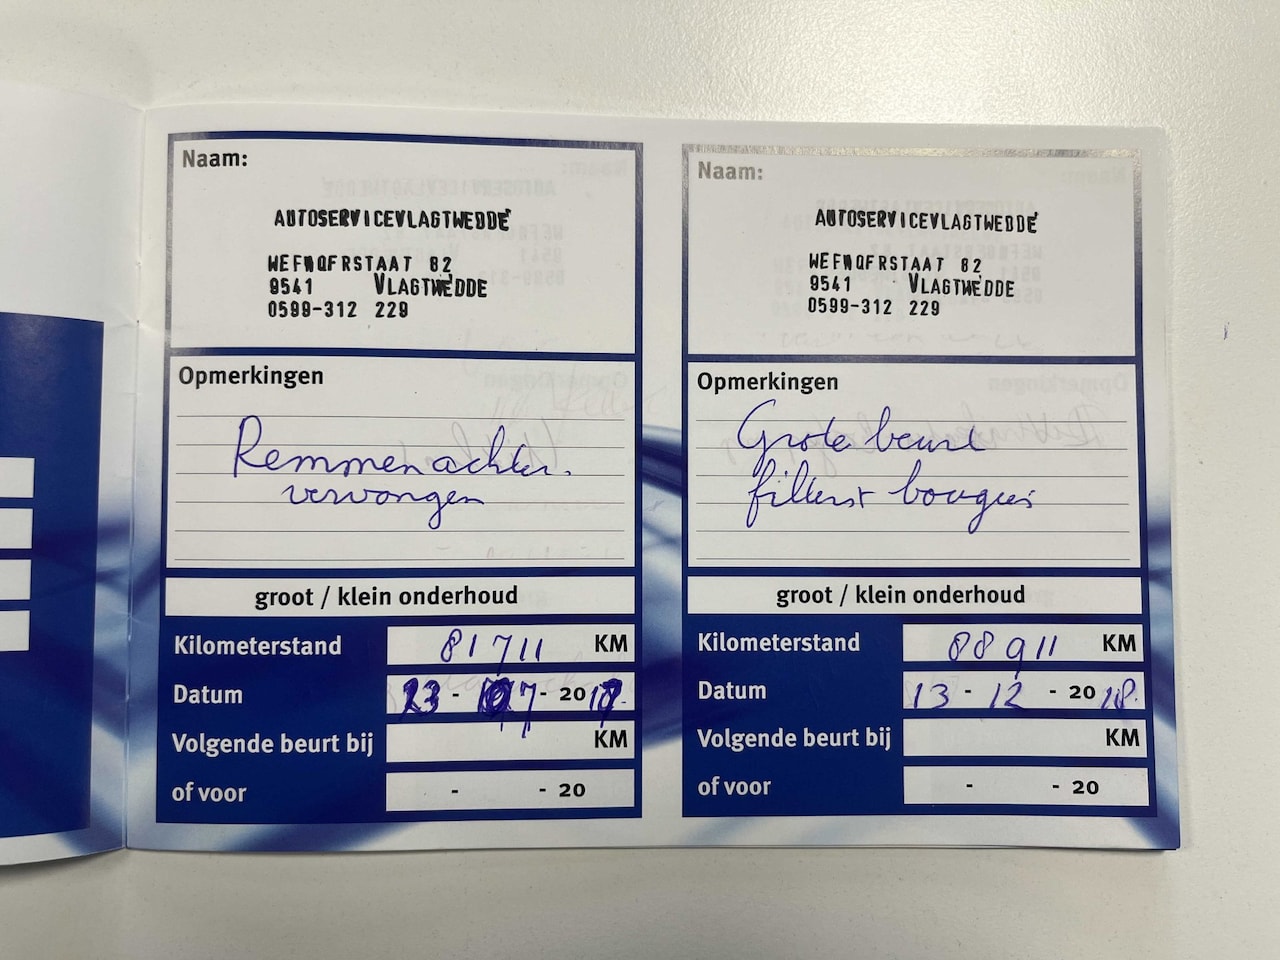 Naam:
AUTOSERVICEVLAGTWEDDE
82
9541 VLAGTWEDDE
0599-312 229
Opmerkingen
Remmen achter.
vervangen
groot / klein onderhoud
Kilometerstand 81711 KM
Datum 23 - - 20
Volgende beurt bij KM
of voor - - 20
Naam:
AUTOSERVICEVLAGTWEDDE
82
9541 VLAGTWEDDE
0599-312 229
Opmerkingen
Grote beurt
filters + bougies
groot / klein onderhoud
Kilometerstand 88911 KM
Datum 13 - 12 - 2018.
Volgende beurt bij KM
of voor - - 20